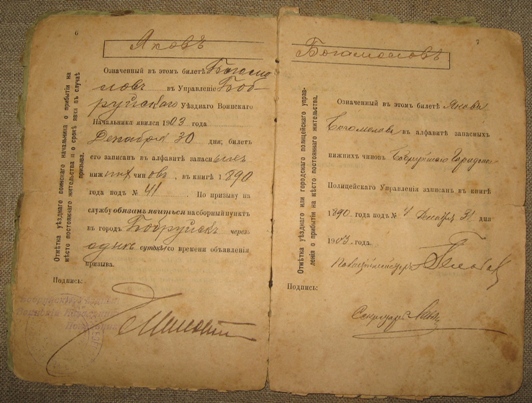 6
Яковъ
Отмѣтка уѣзднаго воинскаго начальника о прибытіи на мѣсто постояннаго жительства и о срокѣ явки въ случаѣ призыва.
Означенный въ этомъ билетѣ Богомо
ловъ въ Управленіе Боб
руйскаго Уѣзднаго Воинскаго
Начальника явился 1903 года
Декабря 30 дня; билетъ
его записанъ въ алфавитъ запасныхъ
нижнихъ чиновъ, въ книгѣ 1890
года подъ № 41 По призыву на
службу обязанъ явиться на сборный пунктъ
въ городъ Бобруйскъ черезъ
однѣ сутки съ времени объявленія
призыва.
Подпись:
7
Богомоловъ
Отмѣтка уѣзднаго или городского полицейскаго управленія о прибытіи на мѣсто постояннаго жительства.
Означенный въ этомъ билетѣ Яковъ
Богомоловъ въ алфавитъ запасныхъ
нижнихъ чиновъ Бобруйскаго Городского
Полицейскаго Управленія записанъ въ книгѣ
1890 года подъ № Декабря 31 дня
1903 года.
Полицеймейстеръ
Подпись:
Секретарь